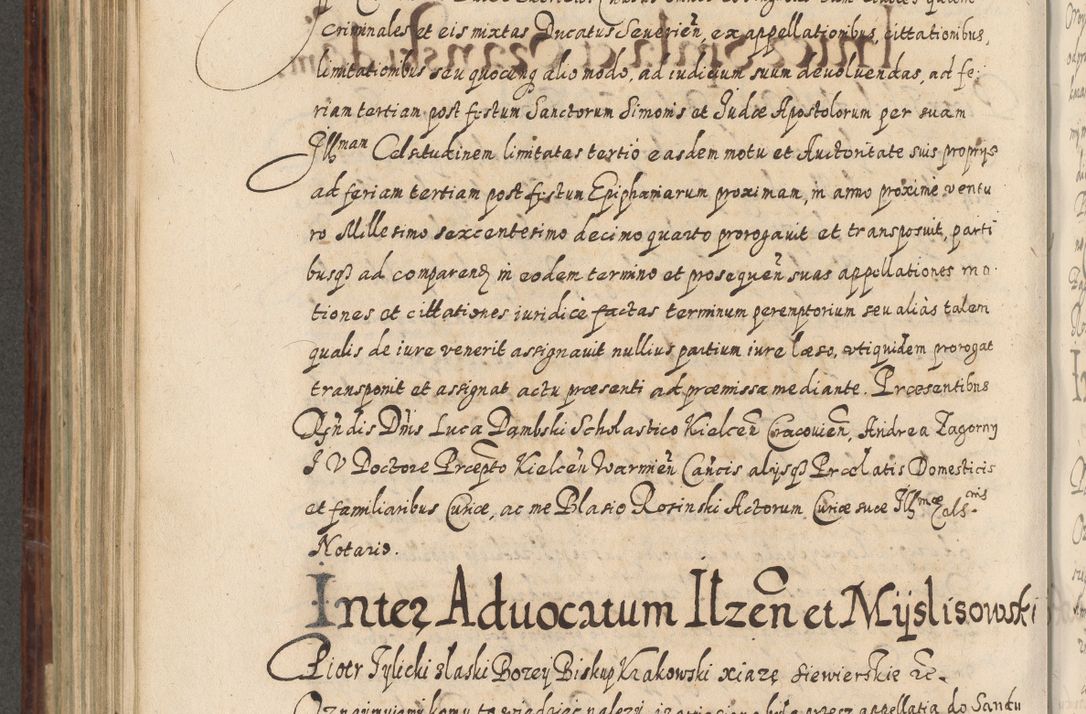 criminales et eis mixtas Ducatus Severien̄, ex appellationibus, cittationibus,
limitationibus seu quocunq̃ alio modo, ad iudicium suum devoluendas, ad fe:
riam tertiam post festum Sanctorum Simonis et Judæ Apostolorum per suam
Jll^man Celsitudinem limitatas tertio easdem motu et Auctoritate suis proprÿs
ad feriam tertiam post festum Epiphaniarum proximam, in anno proxime ventu
ro Millesimo sexcentesimo decimo quarto prorogavit et transposuit, parti
busq̃ ad comparend̃ in eodem termino et prosequen̄ suas appellationes mo
tiones et cittationes iuridicè factas terminum peremptorium seu aliàs talem
qualis de iure venerit assignavit nullius partium iure læso, utiquidem prorogat
transponit et assignat actu præsenti ad præmissa mediante. Præsentibus
Rñdis Dñis Luca Dambski Scholastico Kielcen̄ Cracovien̄, Andrea Zagorny
J V Doctore Præpto Kielcen̄ Warmien̄ Cañcis alÿsq̃ Prælatis Domesticis
et familiaribus Curiæ, ac me Blasio Rosinski Actorum Curiæ suæ Jll^mæ Cels^nis
Notario.
Inter Aduocatum Ilzen̄ et Mÿslisowski
Piotr Tylicki z laski Bozey Biskup Krakowski xiazę Siewierskie etc.
Oznaymuiemy komu to wiedziec nalezy, iz